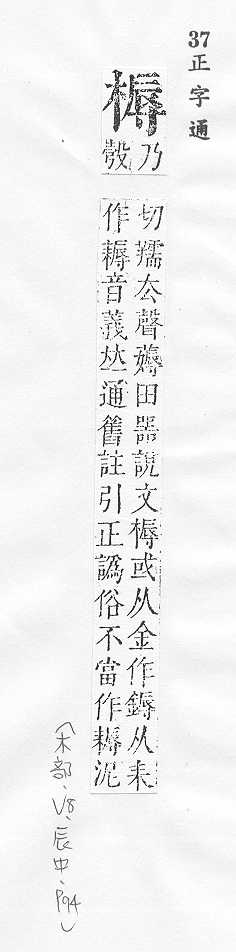 37正字通
槈
乃
彀
切羺厺聲薅田器說文槈或从金作鎒从耒
作耨音義𠀤通舊註引正譌俗不當作耨泥
(木部、V8、辰中、P94)